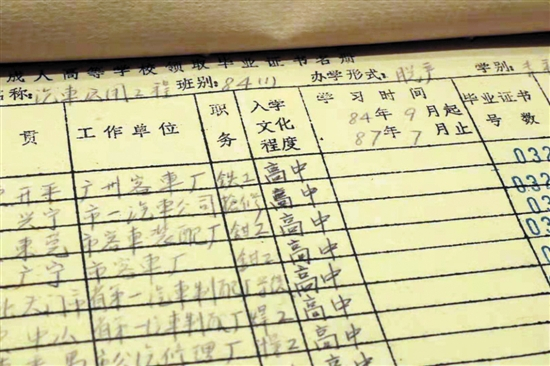 成人高等学校领取毕业证书名册
名称: 汽车应用工程 班别: 84(1) 办学形式: 脱产 学别:
贯 工作单位 职务 入学文化程度 学习时间 84年9月起 87年7月止 毕业证书号数
开平 广州客车厂 铁工 高中 032
兴宁 市一汽车公司 检修 高中 032
东莞 市客车装配厂 钳工 高中 032
广宁 市客车厂 钳工 高中 03
天门市 省第一汽车制配厂 高中
中山 省第一汽车制配厂 焊工 高中
修理厂 高中